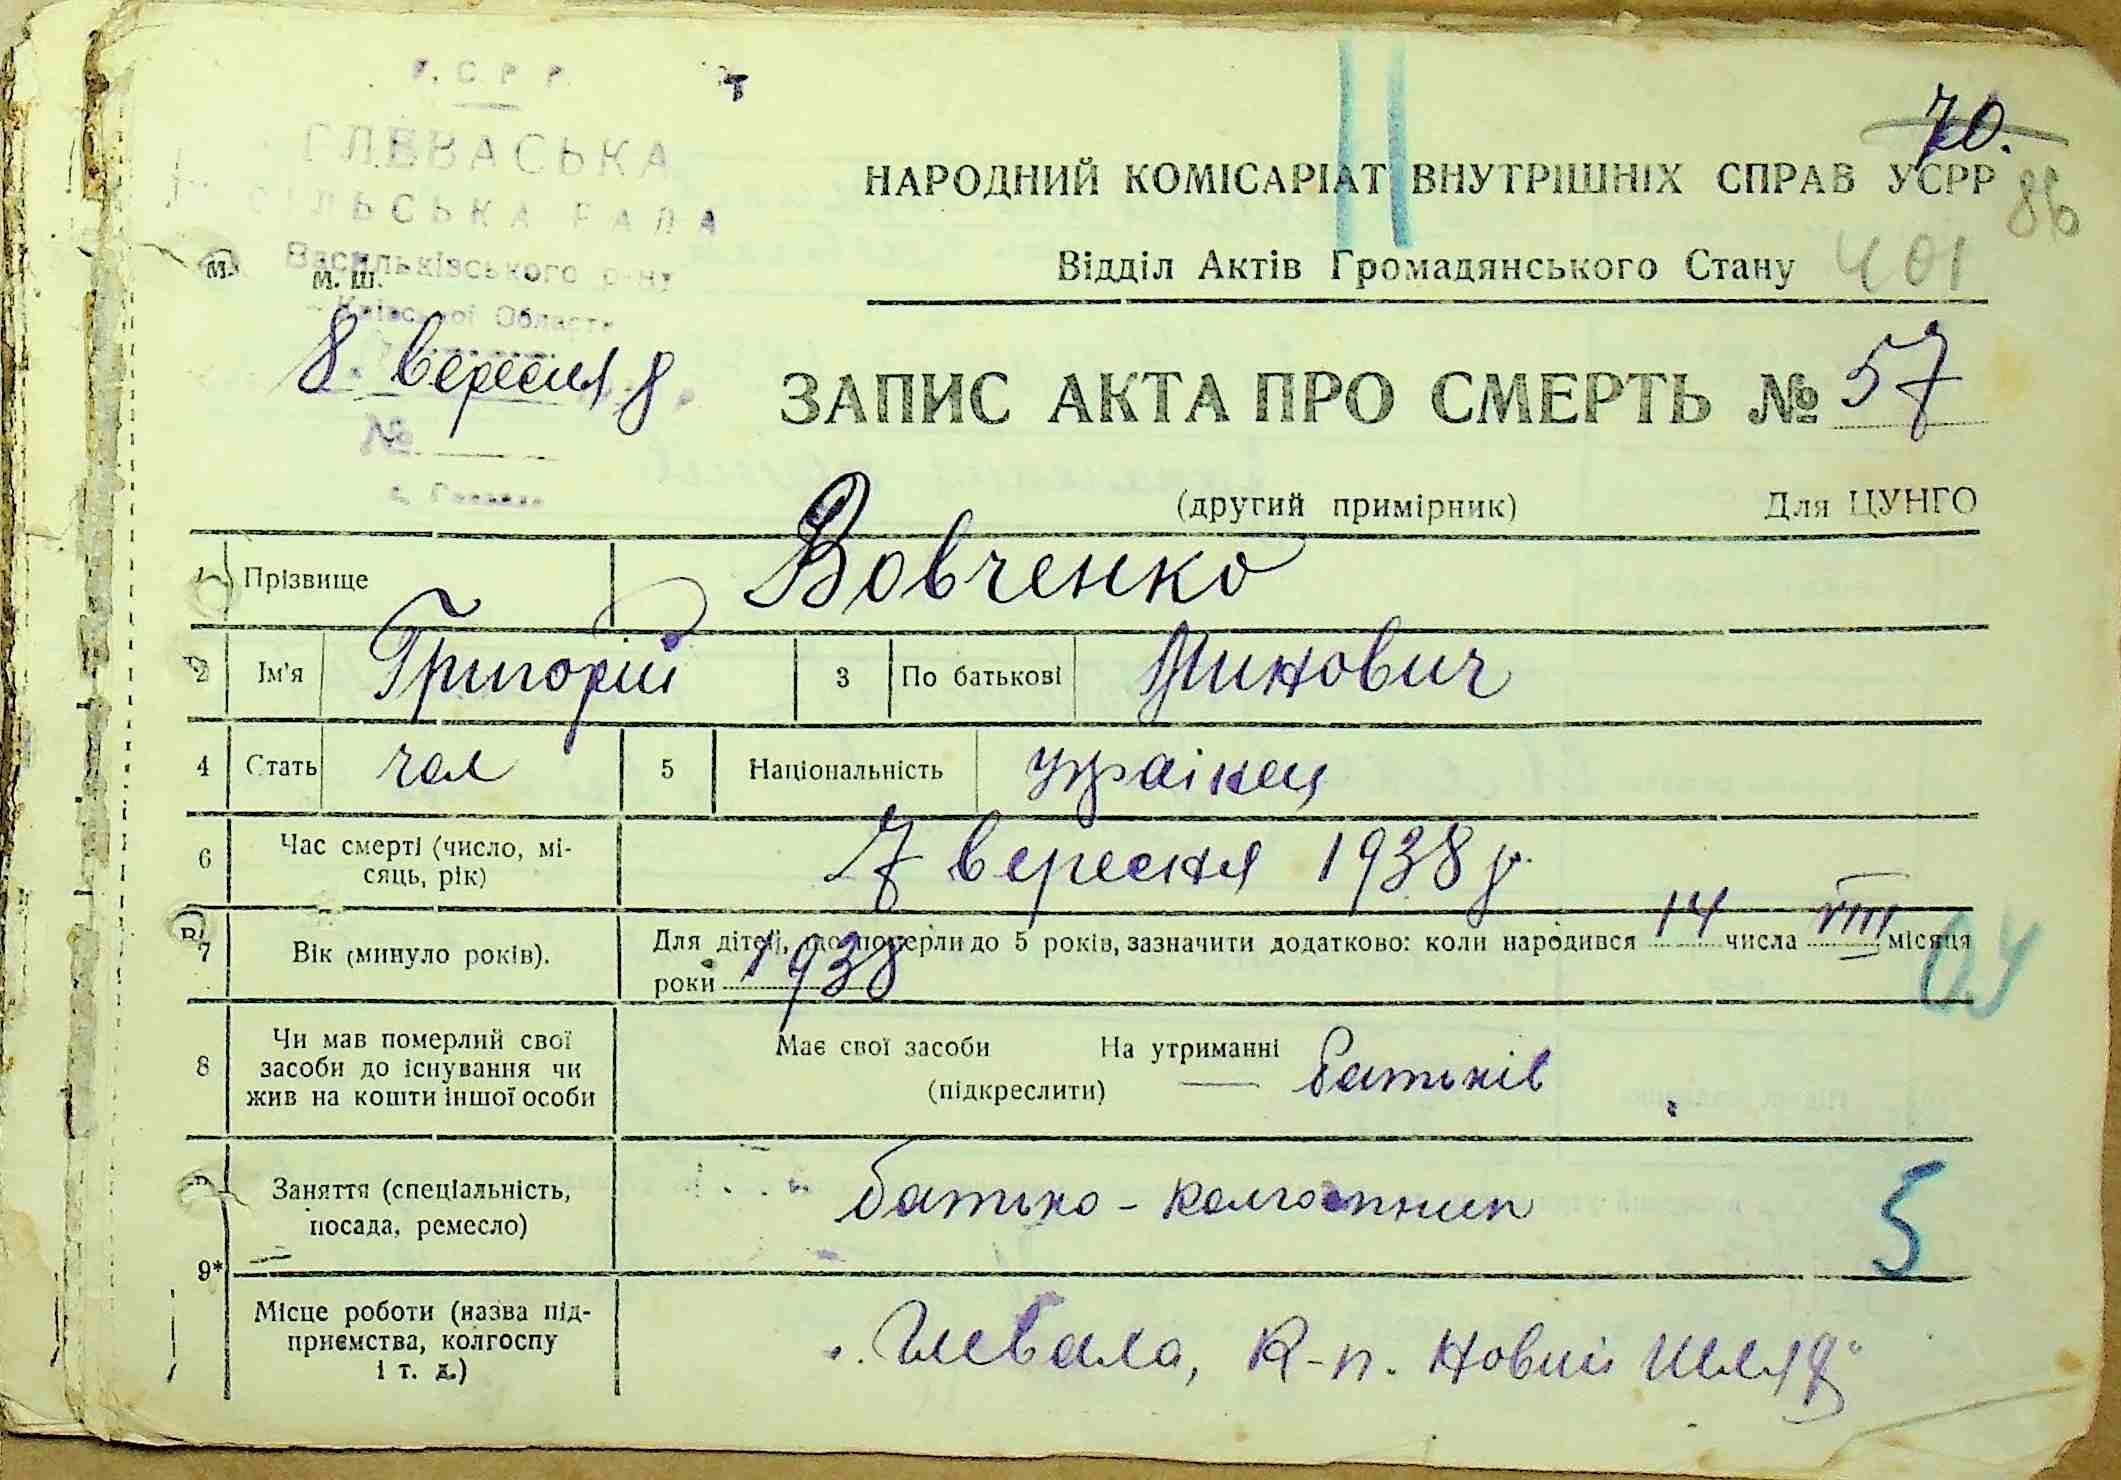 ГЛЕВАСЬКА
СІЛЬСЬКА РАДА
Васильківського р-ну
Київської Області
70.
86
401
НАРОДНИЙ КОМІСАРІАТ ВНУТРІШНІХ СПРАВ УСРР
Відділ Актів Громадянського Стану
М. Ш.
8 вересня 8
№
ЗАПИС АКТА ПРО СМЕРТЬ № 57
(другий примірник) Для ЦУНГО
1 Прізвище Вовченко
2 Ім'я Григорій 3 По батькові Минович
4 Стать чол 5 Національність українец
6 Час смерті (число, мі-
сяць, рік) 7 вересня 1938 р.
7 Вік (минуло років). Для дітей, що померли до 5 років, зазначити додатково: коли народився 14 числа VIII місяця
роки 1938
8 Чи мав померлий свої
засоби до існування чи
жив на кошти іншої особи
Має свої засоби На утриманні батьків
(підкреслити)
9* Заняття (спеціальність,
посада, ремесло) батько - колгоспник
5
Місце роботи (назва під-
приємства, колгоспу
і т. д.)
Глеваха, К-п. Новий Шлях"